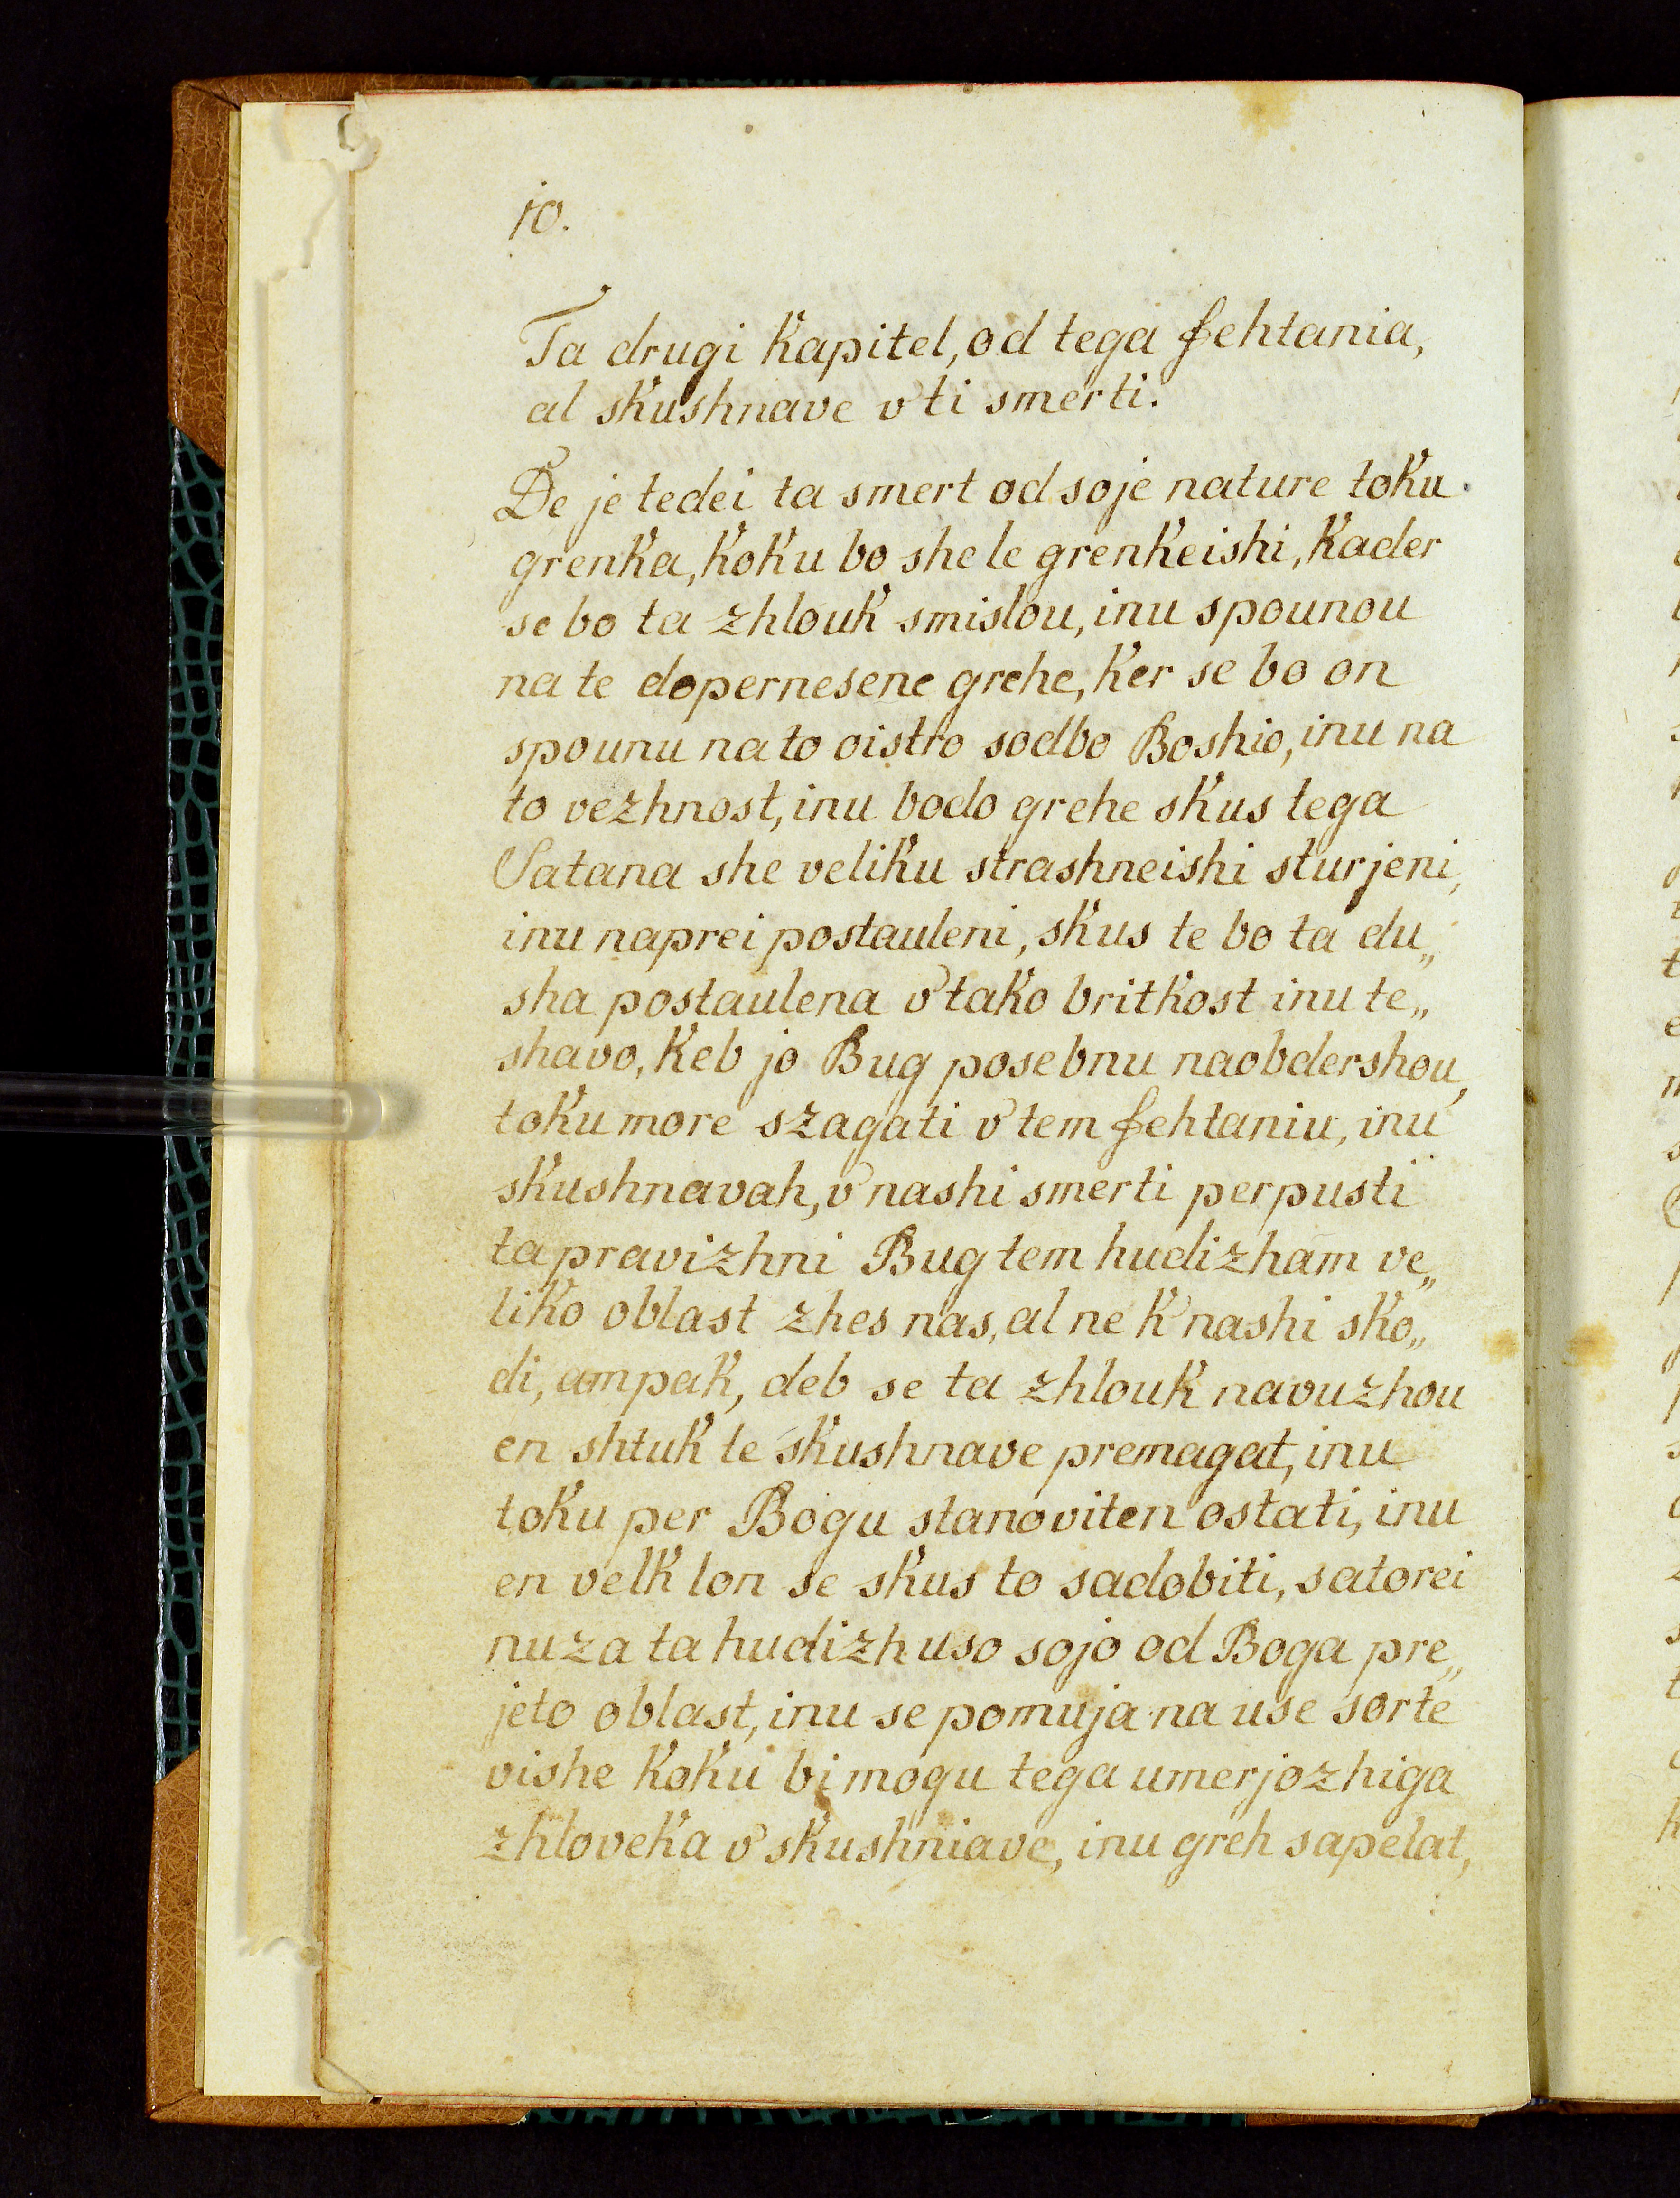 10.
Ta drugi kapitel, od tega fehtania,
al skushnave v' ti smerti.
De je tedei ta smert od soje nature toku
grenka, koku bo she le grenkeishi, kader
se bo ta zhlouk smislou, inu spounou
na te dopernesene grehe, ker se bo on
spounu na to oistro sodbo Boshio, inu na
to vezhnost, inu bodo grehe skus tega
Satana she veliku strashneishi sturjeni,
inu naprei postauleni, skus te bo ta du„
sha postaulena v' tako britkost inu te„
shavo, keb jo Bug posebnu naobdershou,
toku more szagati v' tem fehtaniu, inu
skushnavah, v' nashi smerti perpusti
ta pravizhni Bug tem hudizham ve„
liko oblast zhes nas, al ne k' nashi sko„
di, ampak, deb se ta zhlouk navuzhou
en shtuk te skushnave premagat, inu
toku per Bogu stanoviten ostati, inu
en velk lon se skus to sadobiti, satorei
nuza ta hudizh uso sojo od Boga pre„
jeto oblast, inu se pomuja na use sorte
vishe koku bi mogu tega umerjozhiga
zhloveka v' skushniave, inu greh sapelat,